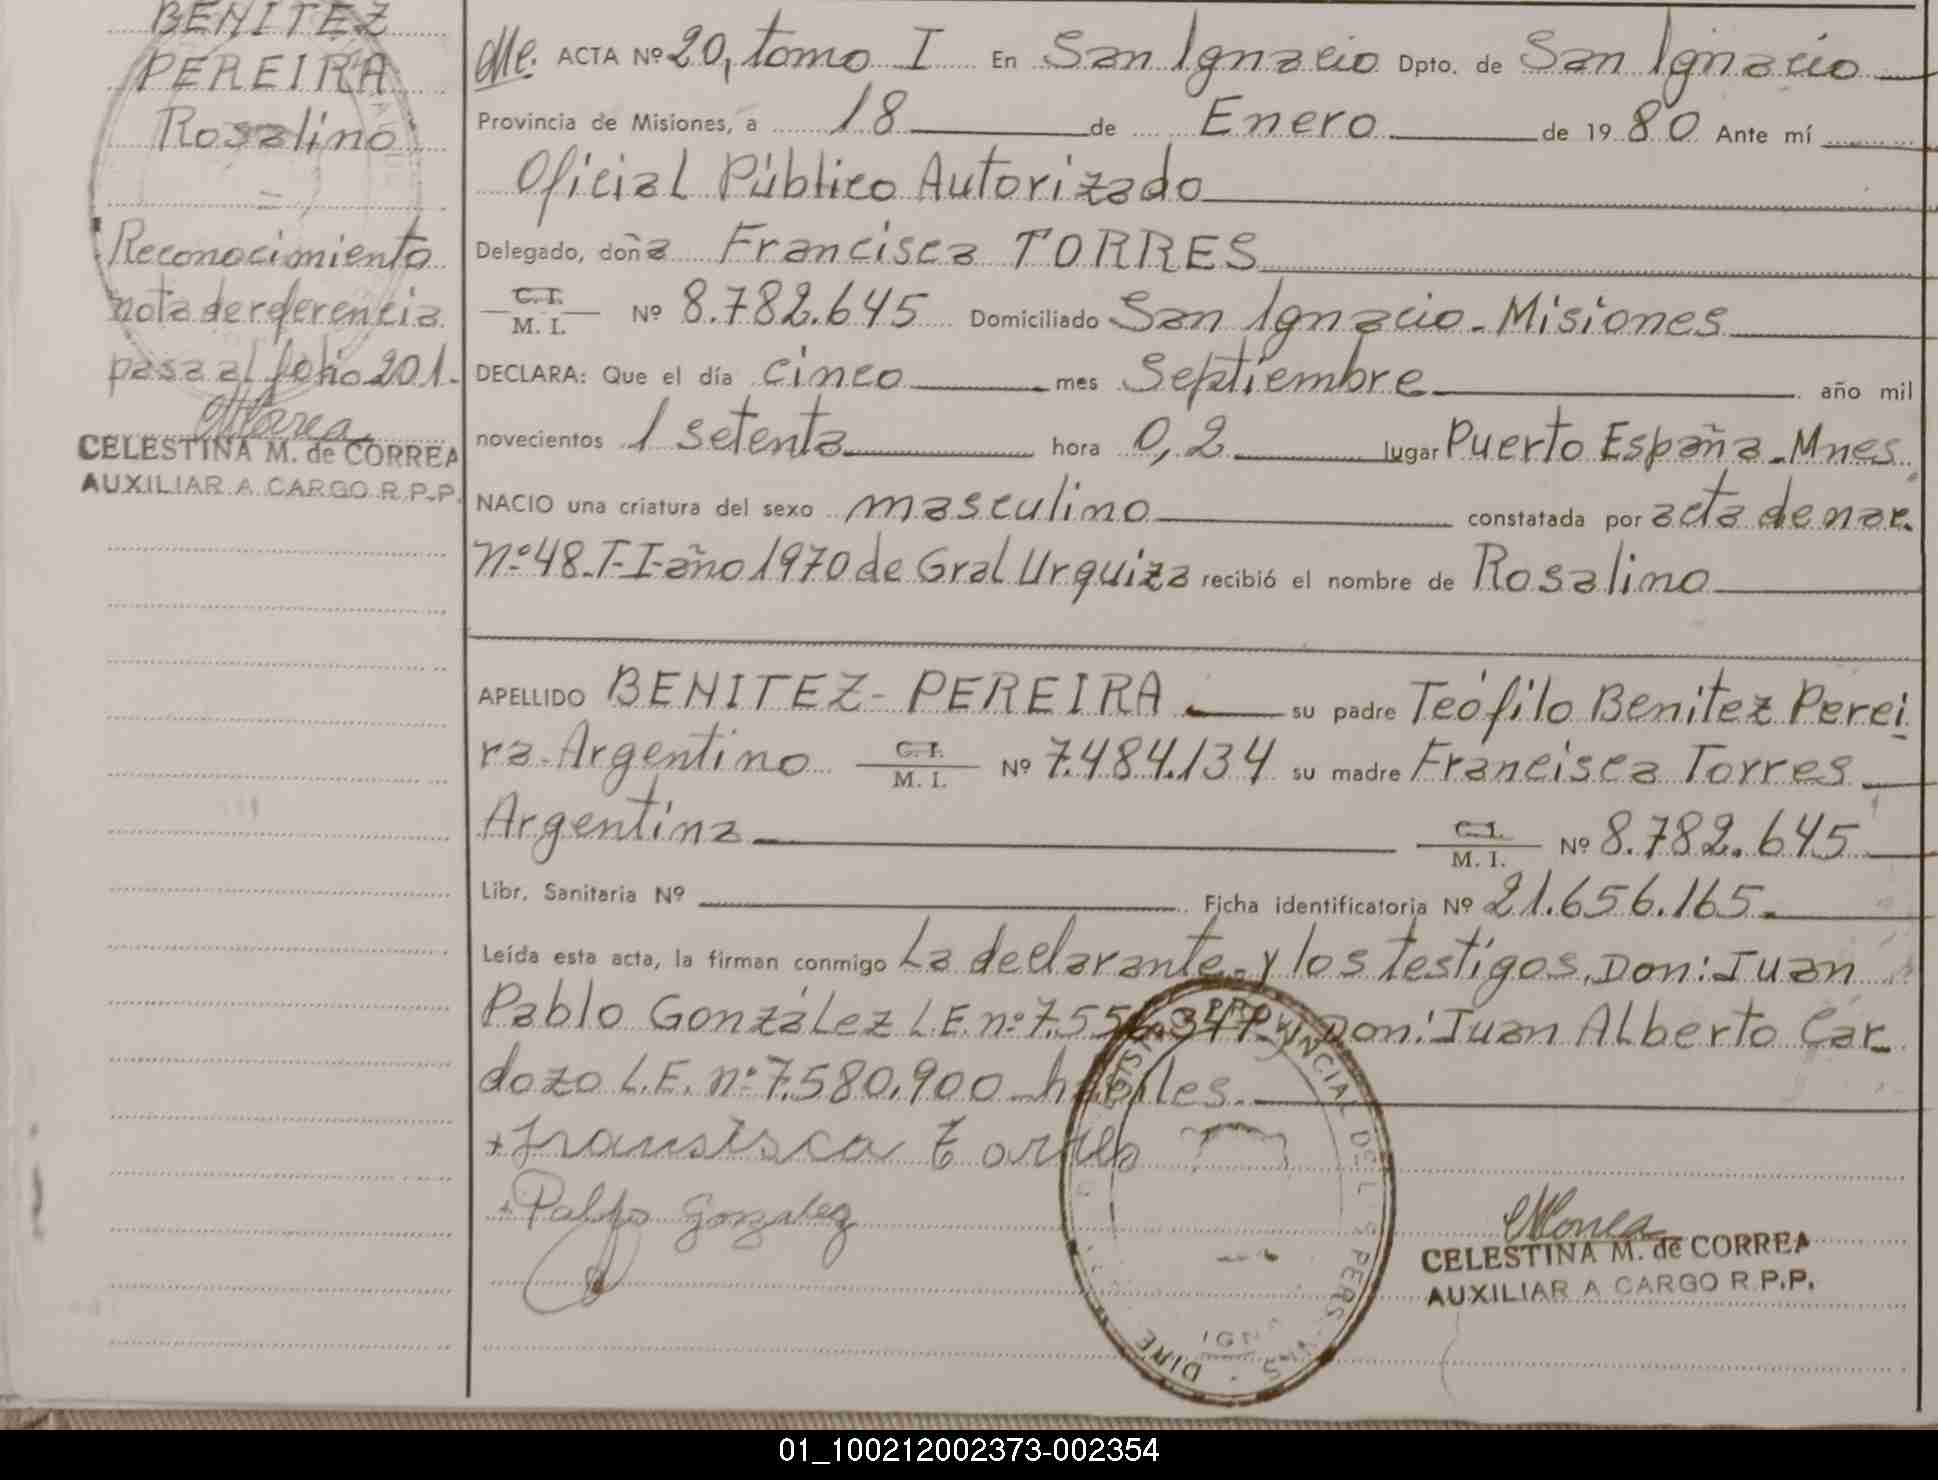 BENITEZ
PEREIRA
Rosalino
=
Reconocimiento
nota de referencia
pasa al folio 201.-
CELESTINA M. de CORREA
AUXILIAR A CARGO R.P.P.
ACTA Nº 20, tomo I En San Ignacio Dpto. de San Ignacio
Provincia de Misiones, a 18 de Enero de 19 80 Ante mí
Oficial Público Autorizado
Delegado, doña Francisca TORRES
C.I.
M. I. Nº 8.782.645 Domiciliado San Ignacio - Misiones
DECLARA: Que el día cinco mes Septiembre año mil
novecientos 1 setenta hora 0,2 lugar Puerto España - Mnes.
NACIO una criatura del sexo masculino constatada por acta de nac.
nº 48 - T - I - año 1970 de Gral Urquiza recibió el nombre de Rosalino
APELLIDO BENITEZ - PEREIRA su padre Teófilo Benitez Perei
ra - Argentino C.I. M. I. Nº 7.484.134 su madre Francisca Torres
Argentina C.I. M. I. Nº 8.782.645
Libr. Sanitaria Nº Ficha identificatoria Nº 21.656.165.-
Leída esta acta, la firman conmigo La declarante - y los testigos, Don: Juan
Pablo González L.E. nº 7.556.377 - y Don: Juan Alberto Car-
dozo L.E. nº 7.580.900 - hábiles.
+ Fransisca Torres
+ Pablo Gonzalez
CELESTINA M. de CORREA
AUXILIAR A CARGO R.P.P.
PROVINCIAL DEL
PERS
DIRE
01_100212002373-002354